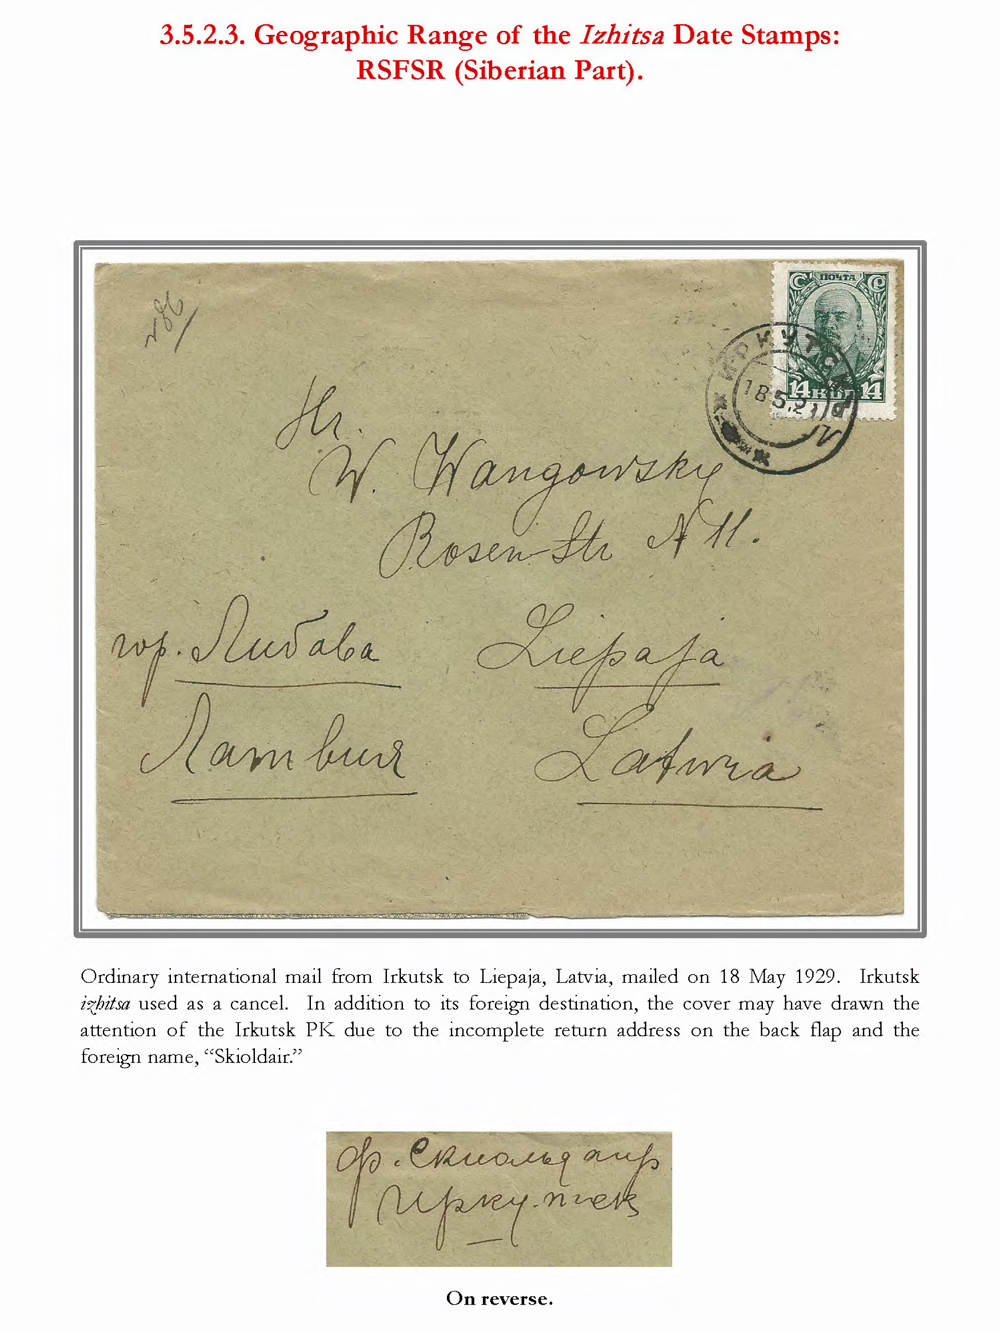 3.5.2.3. Geographic Range of the Izhitsa Date Stamps:
RSFSR (Siberian Part).
ПОЧТА
14 КОП 14
ИРКУТСК
18.5.2
Hr.
W. Wangowsky
Rosen-Str N 11.
гор. Либава
Liepaja
Латвия
Latwia
Ordinary international mail from Irkutsk to Liepaja, Latvia, mailed on 18 May 1929. Irkutsk
izhitsa used as a cancel. In addition to its foreign destination, the cover may have drawn the
attention of the Irkutsk PK due to the incomplete return address on the back flap and the
foreign name, “Skioldair.”
ф. Скиольдаир
Иркутск
On reverse.